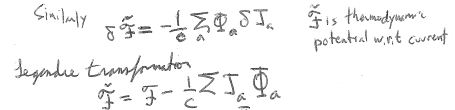 Similarly
δ ℱ̃ = -1/c Σ_a Φ_a δJ_a
ℱ̃ is thermodynamic potential w.r.t current
Legendre transformation
ℱ̃ = ℱ - 1/c Σ J_a Φ_a